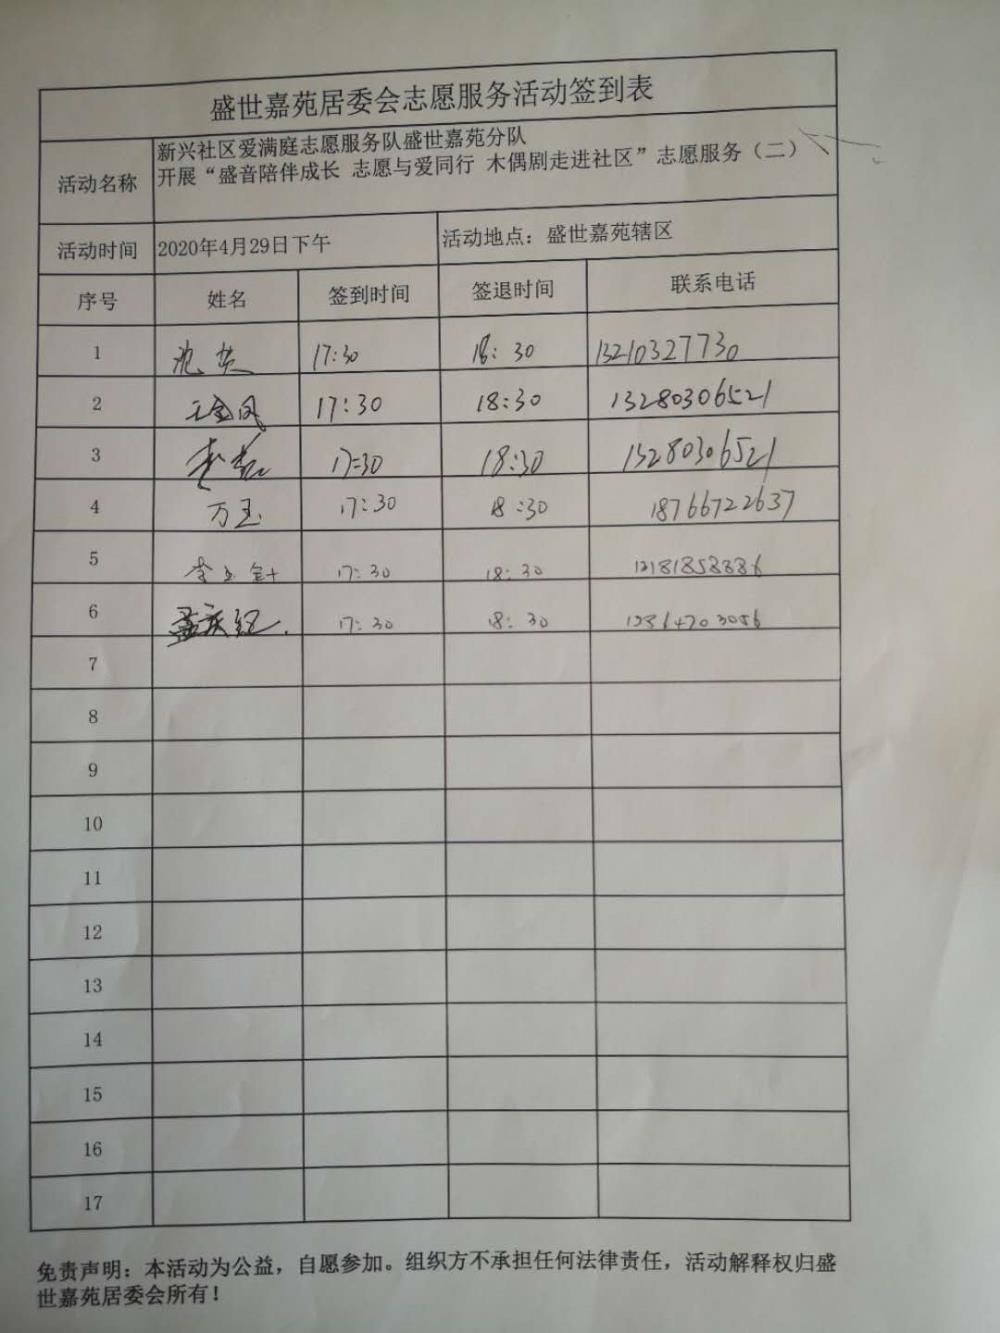 盛世嘉苑居委会志愿服务活动签到表
活动名称
新兴社区爱满庭志愿服务队盛世嘉苑分队
开展“盛音陪伴成长 志愿与爱同行 木偶剧走进社区”志愿服务（二）
活动时间 2020年4月29日下午 活动地点：盛世嘉苑辖区
序号 姓名 签到时间 签退时间 联系电话
1 17:30 18:30 13210327730
2 王金凤 17:30 18:30 13280306521
3 17:30 18:30 13280306521
4 万玉 17:30 18:30 18766722637
5 17:30 18:30
6 17:30 18:30
7
8
9
10
11
12
13
14
15
16
17
免责声明：本活动为公益，自愿参加。组织方不承担任何法律责任，活动解释权归盛
世嘉苑居委会所有！